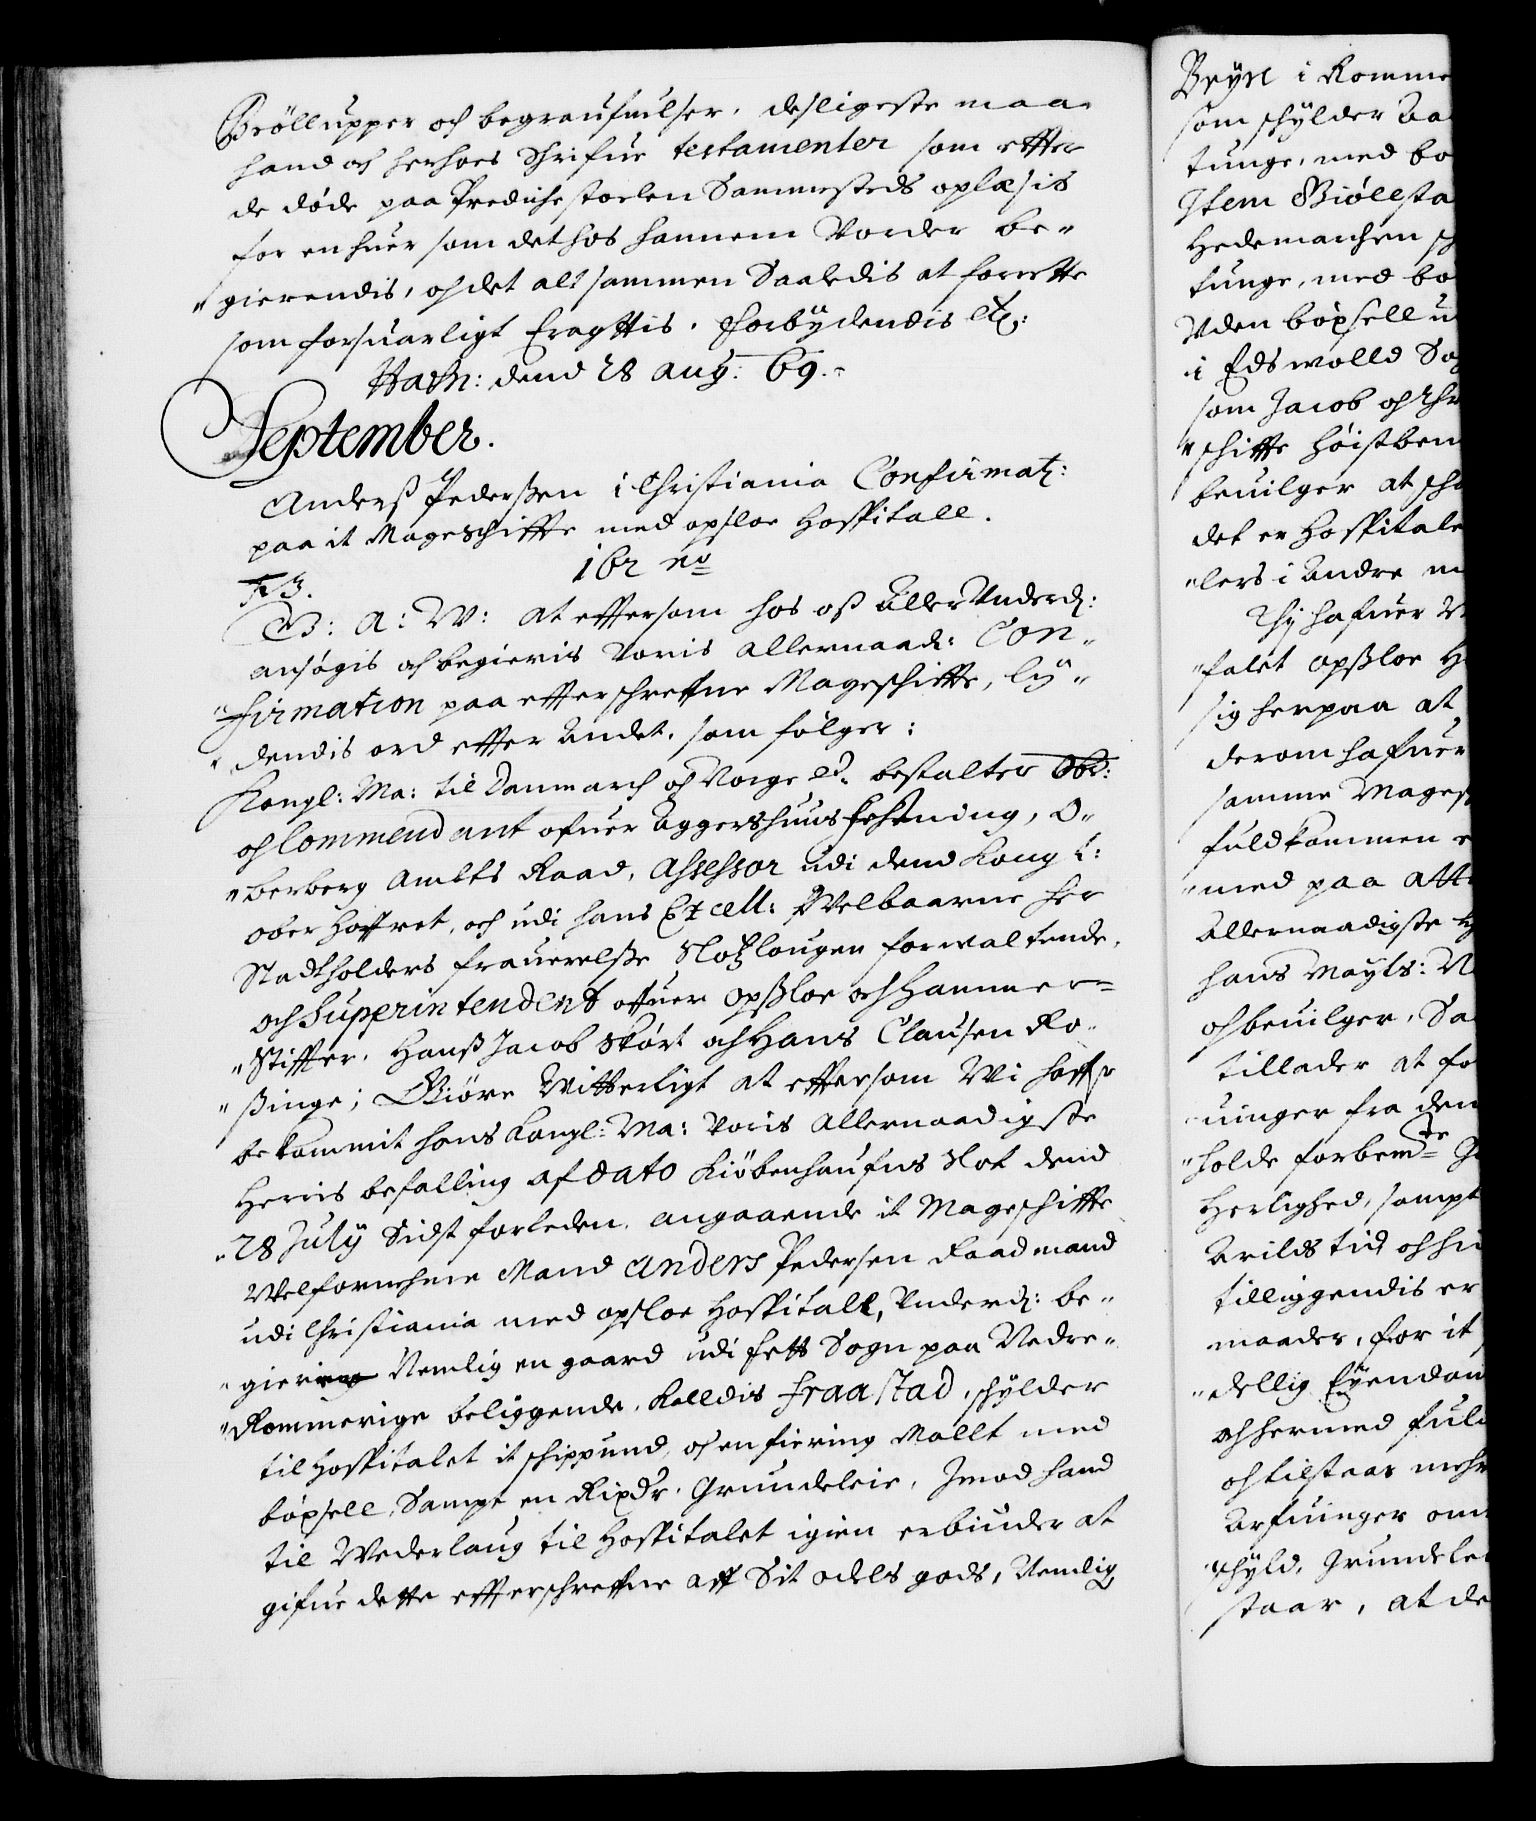 Bröllupper och begraufuelser, desligeste maa
hand och herhoes Schrifue testamenter som effter
de döde paa Predichestoelen Sammesteds oplæsis
for en huer som det hos hannem Vorder be„
„gierendis, och det alt sammen Saaledis at forrette
som forsuarligt Eragttis. Forbydendis etc:
Hafn: dend 28 aug: 69.
September.
Anderss Pederssen i Christiania Confirmat:
paa it Mageschiffte med opsloe Hospitall.
F 3.
162 no
G: A: W: At eftersom hos oss AllerVnderd:
ansögis och begieris Voris allernaad: Con„
„firmation paa effterschreffne Mageschiffte, ly„
„dendis ord effter Andet, som fölger:
Kongl: Ma: til Danmarch och Norge etc. bestalter Obr:
och Commendant ofuer Aggershuus Festning, O„
„berberg Ambts Raad, Assessor udi dend Kongl:
ober Hoffret, och udi hans Excell: Welbaarne Her
Stadtholders frauerelsse Slotzlougen forwaltende,
och Supperintendent offuer Opssloe och Hammer„
„Stiffter, Hanss Jacob Skört och Hans Clausen Ro„
„ssinge; Giöre Witterligt at effersom Wi haffr
bekommit hans Kongl: Ma: Voris Allernaadigste
Herris befalling af dato Kiöbenhaufns Slot dend
28 July Sidst forleden, angaaende it Mageschiffte
Welfornehme Mand Anders Pedersen Raadmand
udi Christiania med opsloe Hospitall, Vnderd: be„
„gierer Nemlig en gaard udi Fetts Sogn paa Nedre„
„Rommerige beliggende, Kaldis Fraastad, schylder
til Hospitalet it schippund, och en fiering Mallt med
böxsell, Sampt en Rixdr. Grundeleie, Jmod hand
til Wederlaug til Hospitalet igien erbiuder at
gifue dette effterschreffne aff Sit odels gods, Nemlig
Bryn i Romme
som schylder Aa
tunge, med bo
Item Giöllsta
Hedemarchen sch
tunge, med bo
Vden böxsell u
i Edswolld So
som Jacob och
„schiffte Höistbem
beuilger at sch
det er Hospitale
„lers i Andre m
Thj hafuer
„talet Opssloe H
sig herpaa at
derom hafuer
samme Magesch
fuldkommen
„med paa
Allernaadigste
hans Mayts:
och beuilger, Sa
tillader at fo
„uinger fra dem
„holde forbemte
Herlighed, sampt
Arilds tid och
tilliggendis er
maader, for it
„dellig Eyendom
och hermed ful
och tilstaar mehr
Arfuinger om
schyld, Grundele
staar, at de